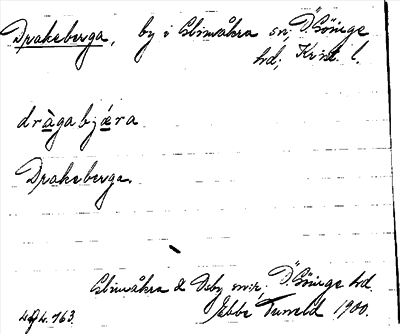 Drakeberga, by i Glimåkra sn; Ö Göinge
hd; Krist. l.
dràgabjǽra
Drakeberga.
Glimåkra & Osby snr; Ö Göinge hd.
Ebbe Tuneld 1900.